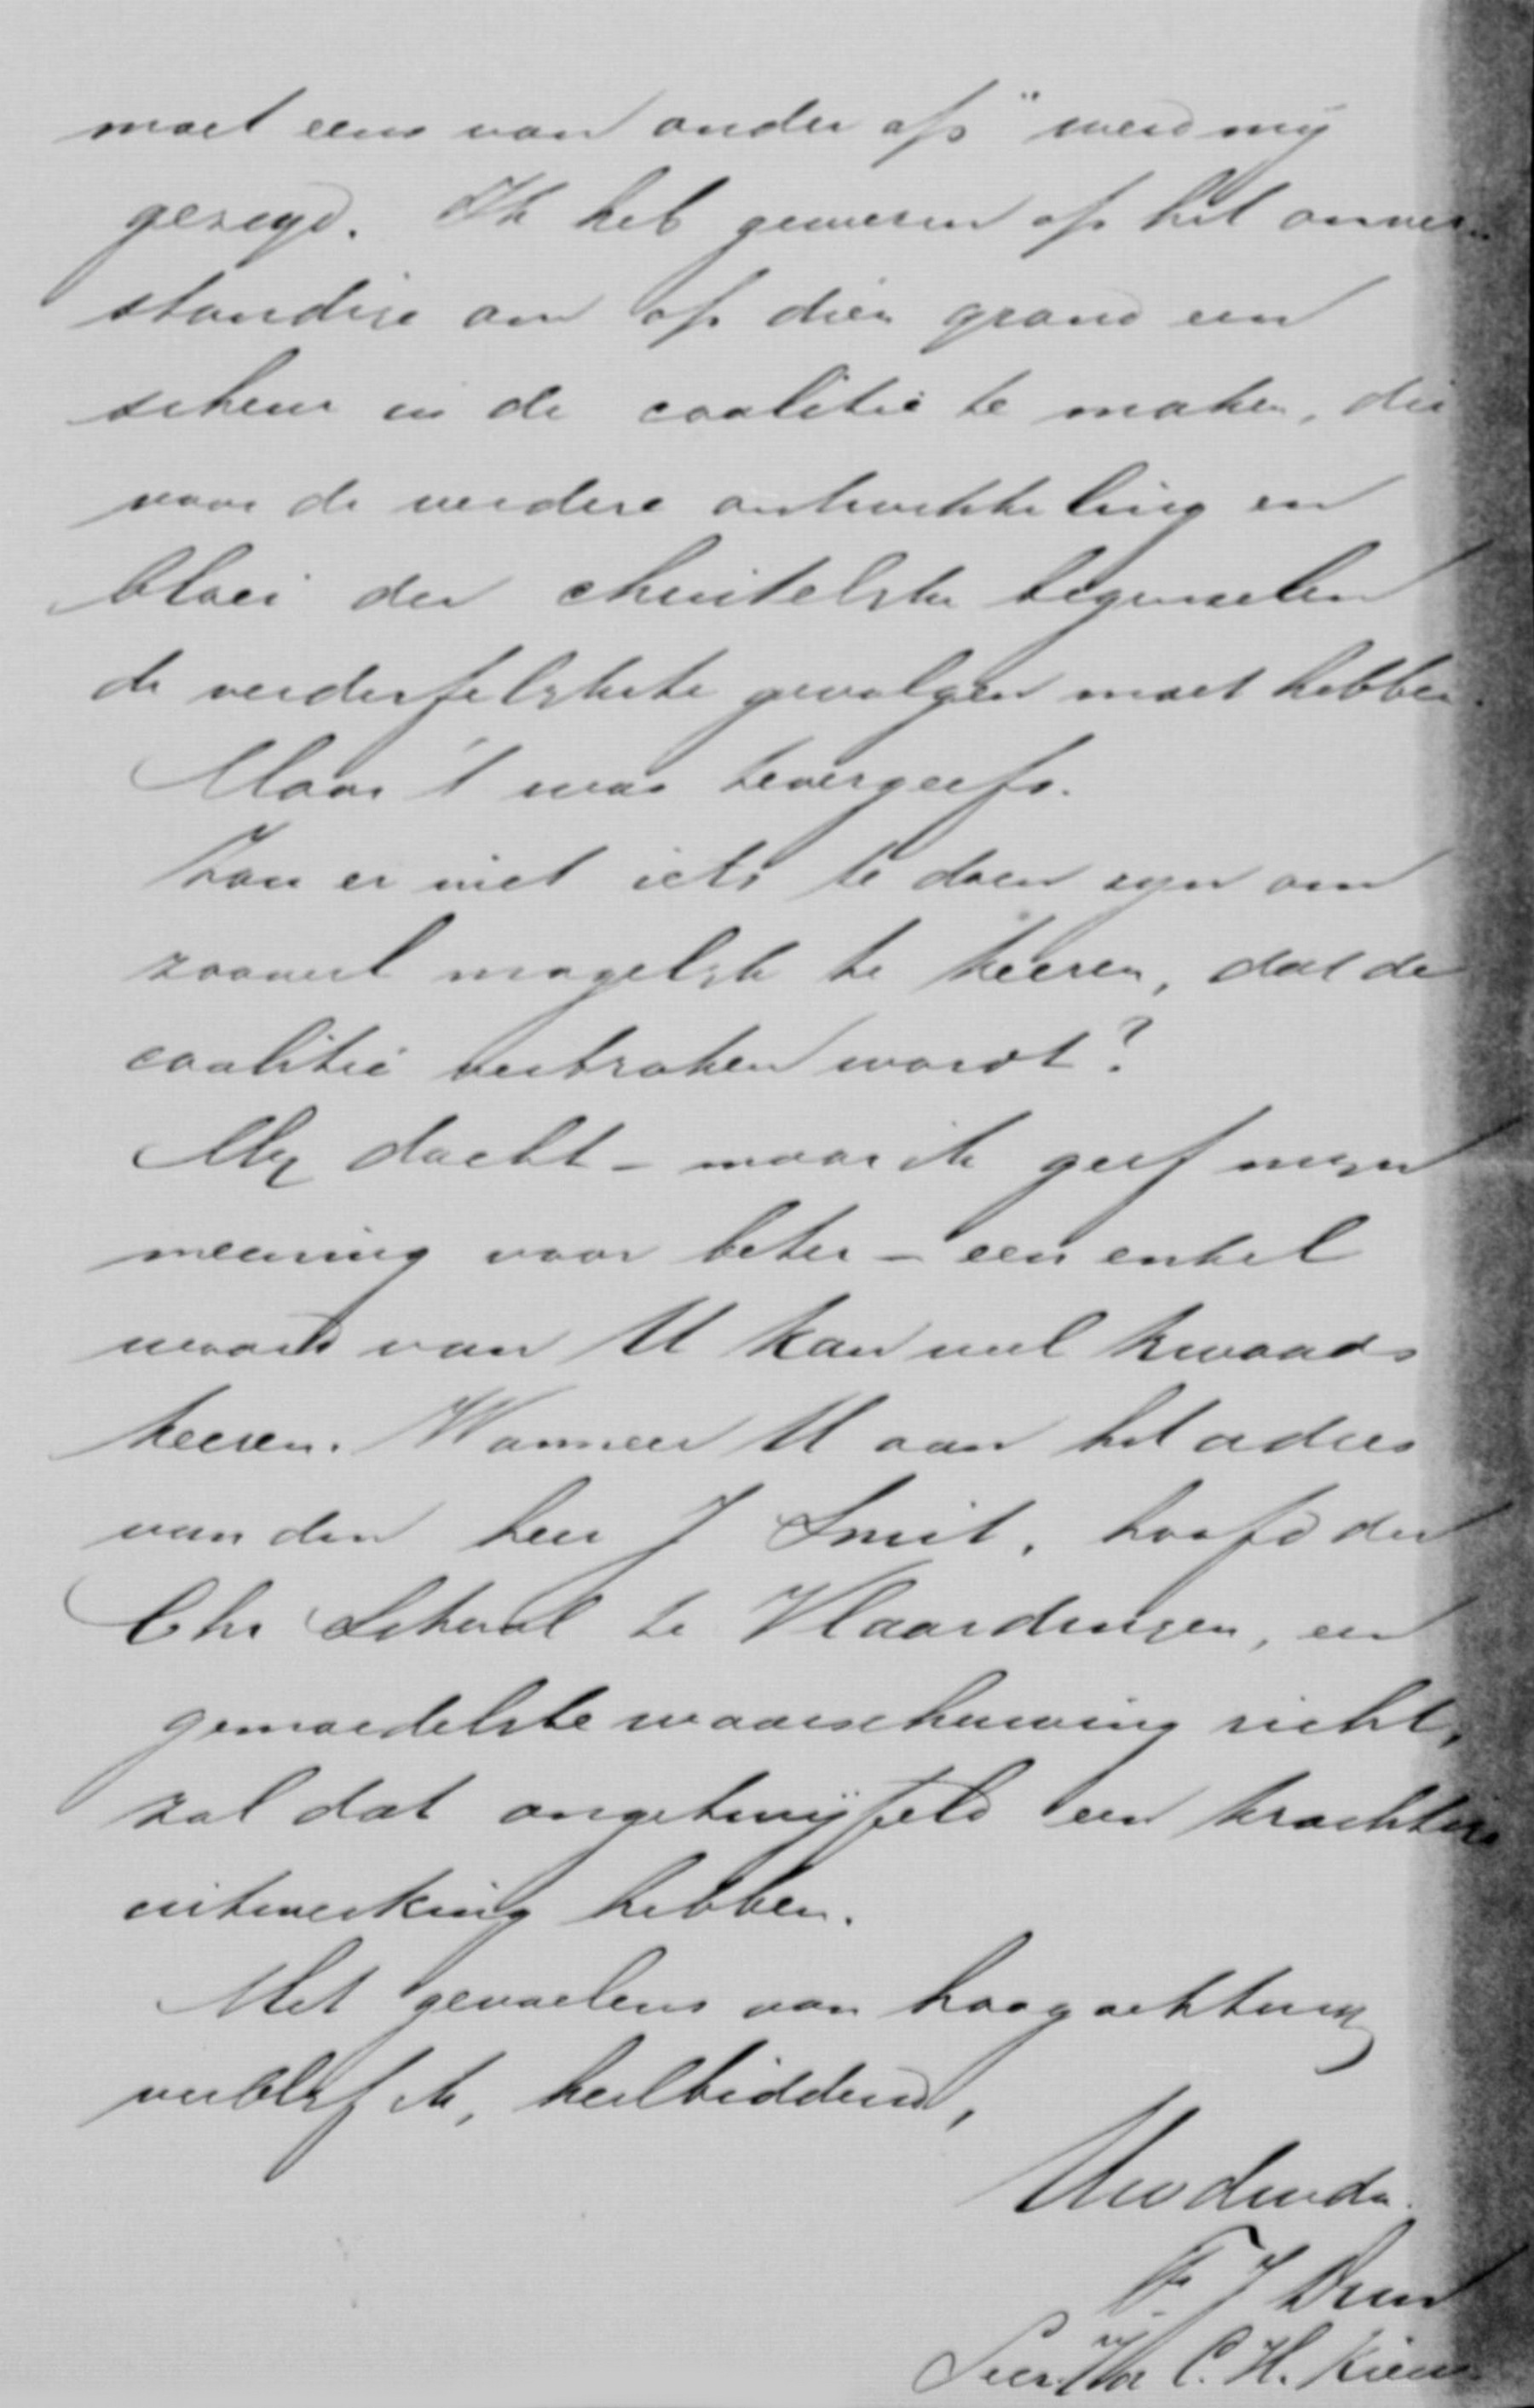 moet eens van onder op" werd mij
gezegd. Ik heb gewezen op het onver-
standige om op dien grond een
scheur in de coalitie te maken, die
voor de verdere ontwikkeling en
bloei der christelijke beginselen
de verderfelijkste gevolgen moet hebben.
Maar 't was tevergeefs.
Zou er niet iets te doen zijn om
zooveel mogelijk te keeren, dat de
coalitie verbroken wordt?
Mij dacht - maar ik geef mijn
meening voor beter - een enkel
woord van U kan veel kwaads
keeren. Wanneer U aan het adres
van den heer J Smit, hoofd der
Chr School te Vlaardingen, een
gemoedelijke waarschuwing richt,
zal dat ongetwijfeld een krachtige
uitwerking hebben.
Met gevoelens van hoogachting
verblijf ik, heilbiddend,
Uw dw dn.
F. J
C. H. Kiesv